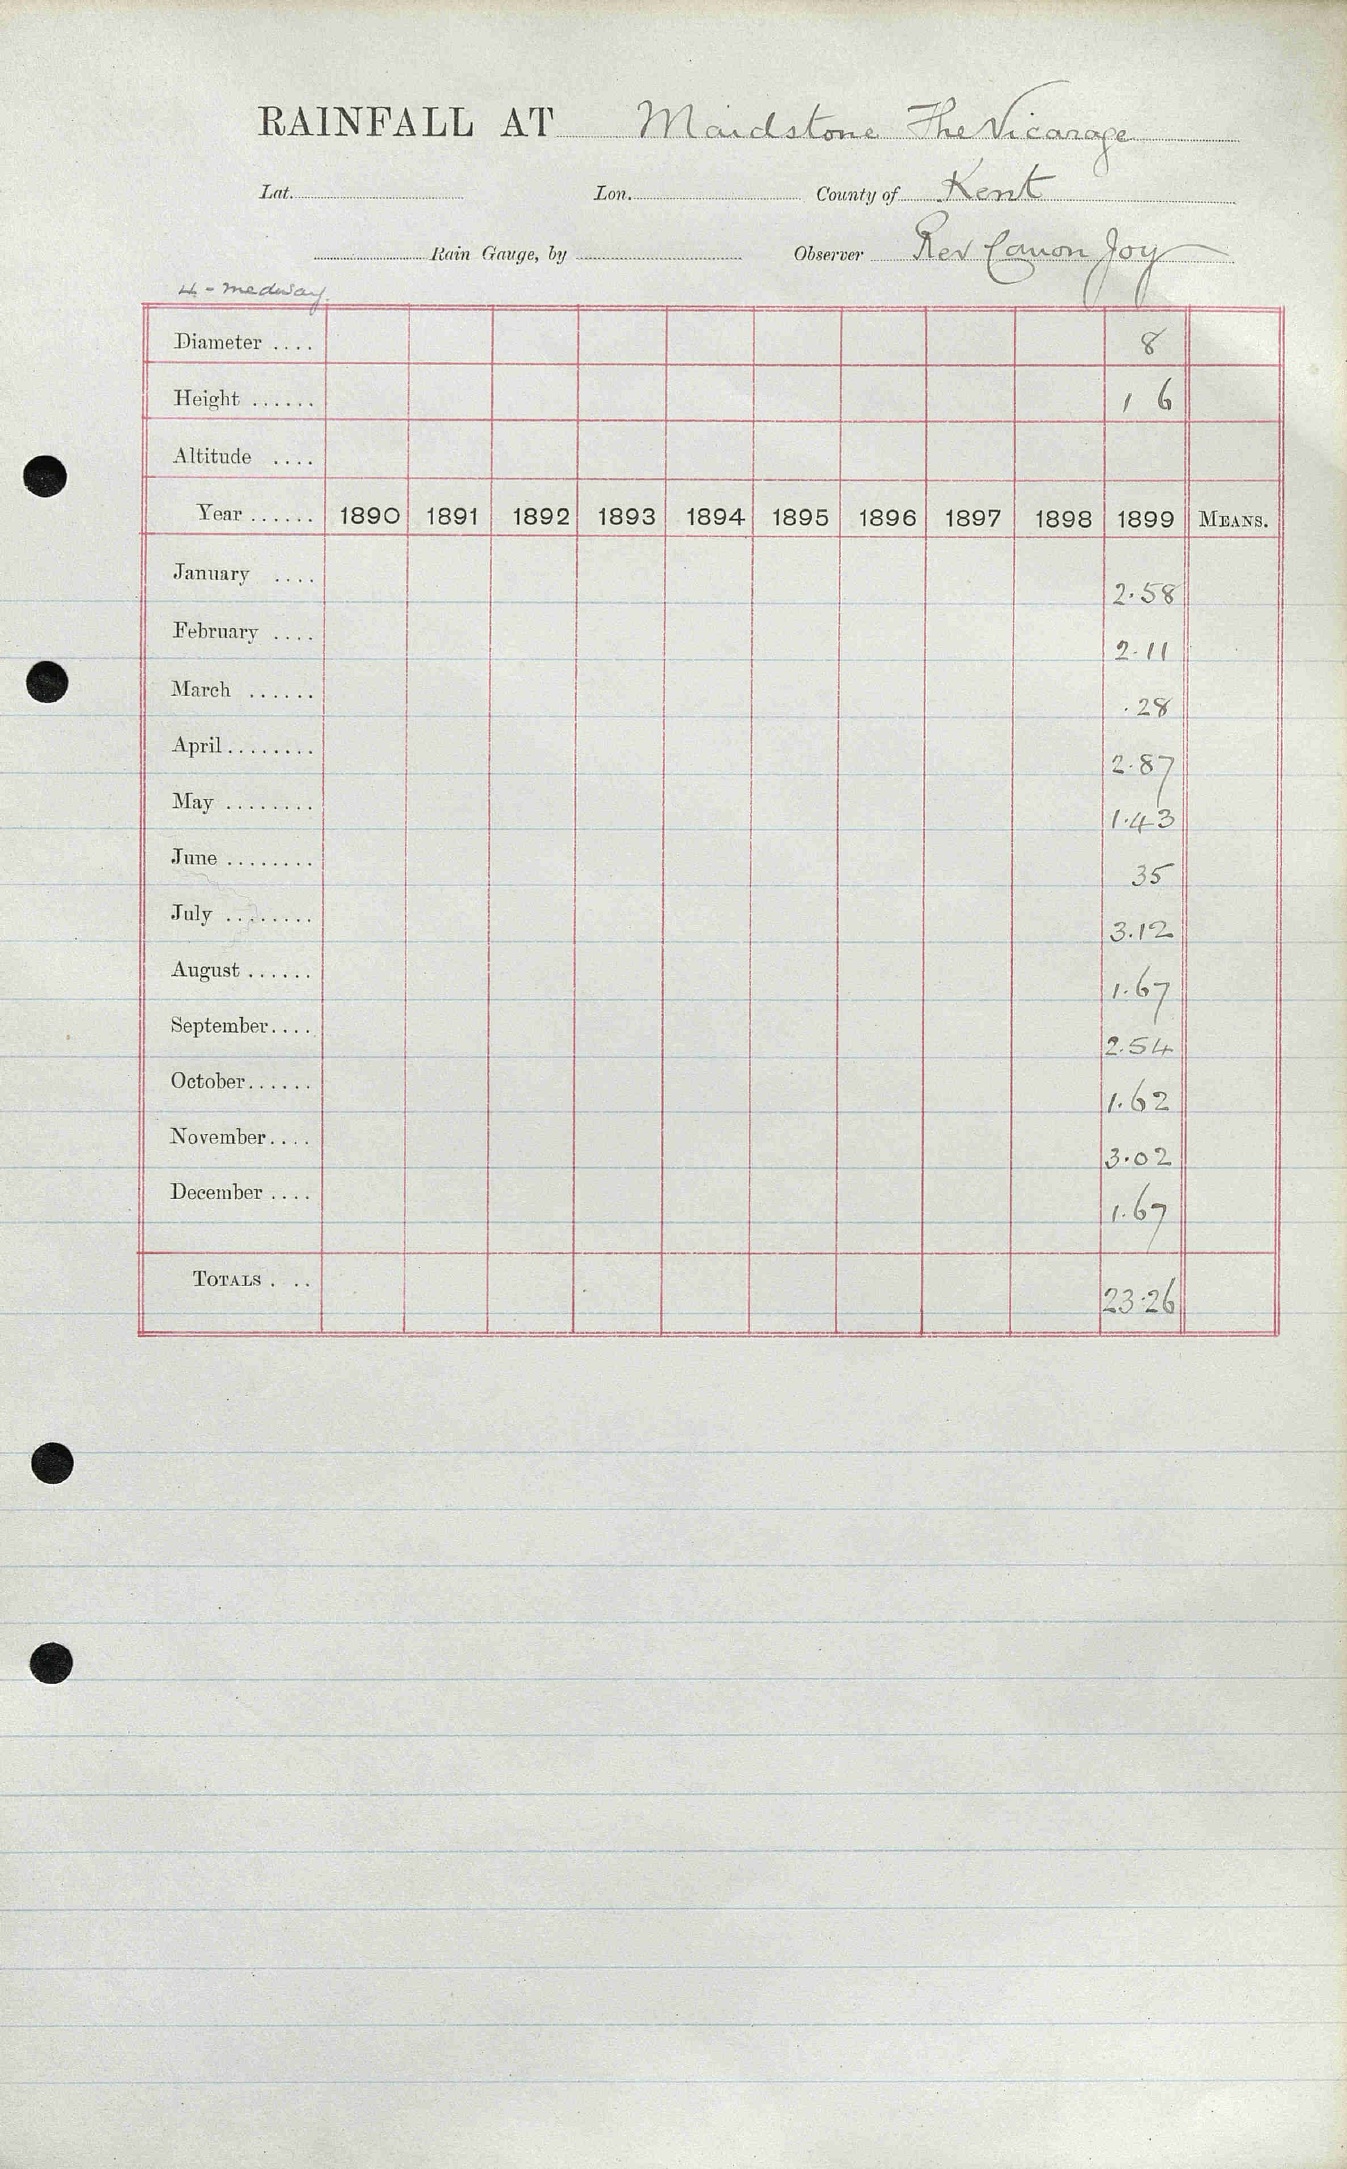 RAINFALL AT Maidstone The Vicarage
Lat. Lon. County of Kent
Rain Gauge, by Observer Rev Canon Joy
4 - Medway
Diameter .... 8
Height ...... 1 6
Altitude ....
Year ...... 1890 1891 1892 1893 1894 1895 1896 1897 1898 1899 MEANS.
January .... 2.58
February .... 2.11
March ...... .28
April ........ 2.87
May ........ 1.43
June ........ 35
July ........ 3.12
August ...... 1.67
September.... 2.54
October...... 1.62
November.... 3.02
December .... 1.67
TOTALS . .. 23.26